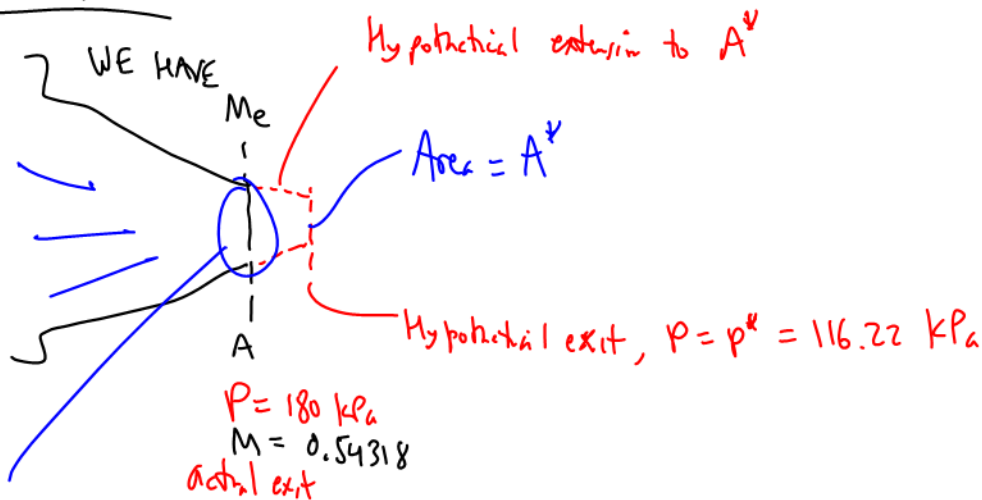 WE HAVE
Hypothetical extension to A*
Me
Area = A*
Hypothetial exit, P = p* = 116.22 kPa
A
P = 180 kPa
M = 0.54318
actual exit